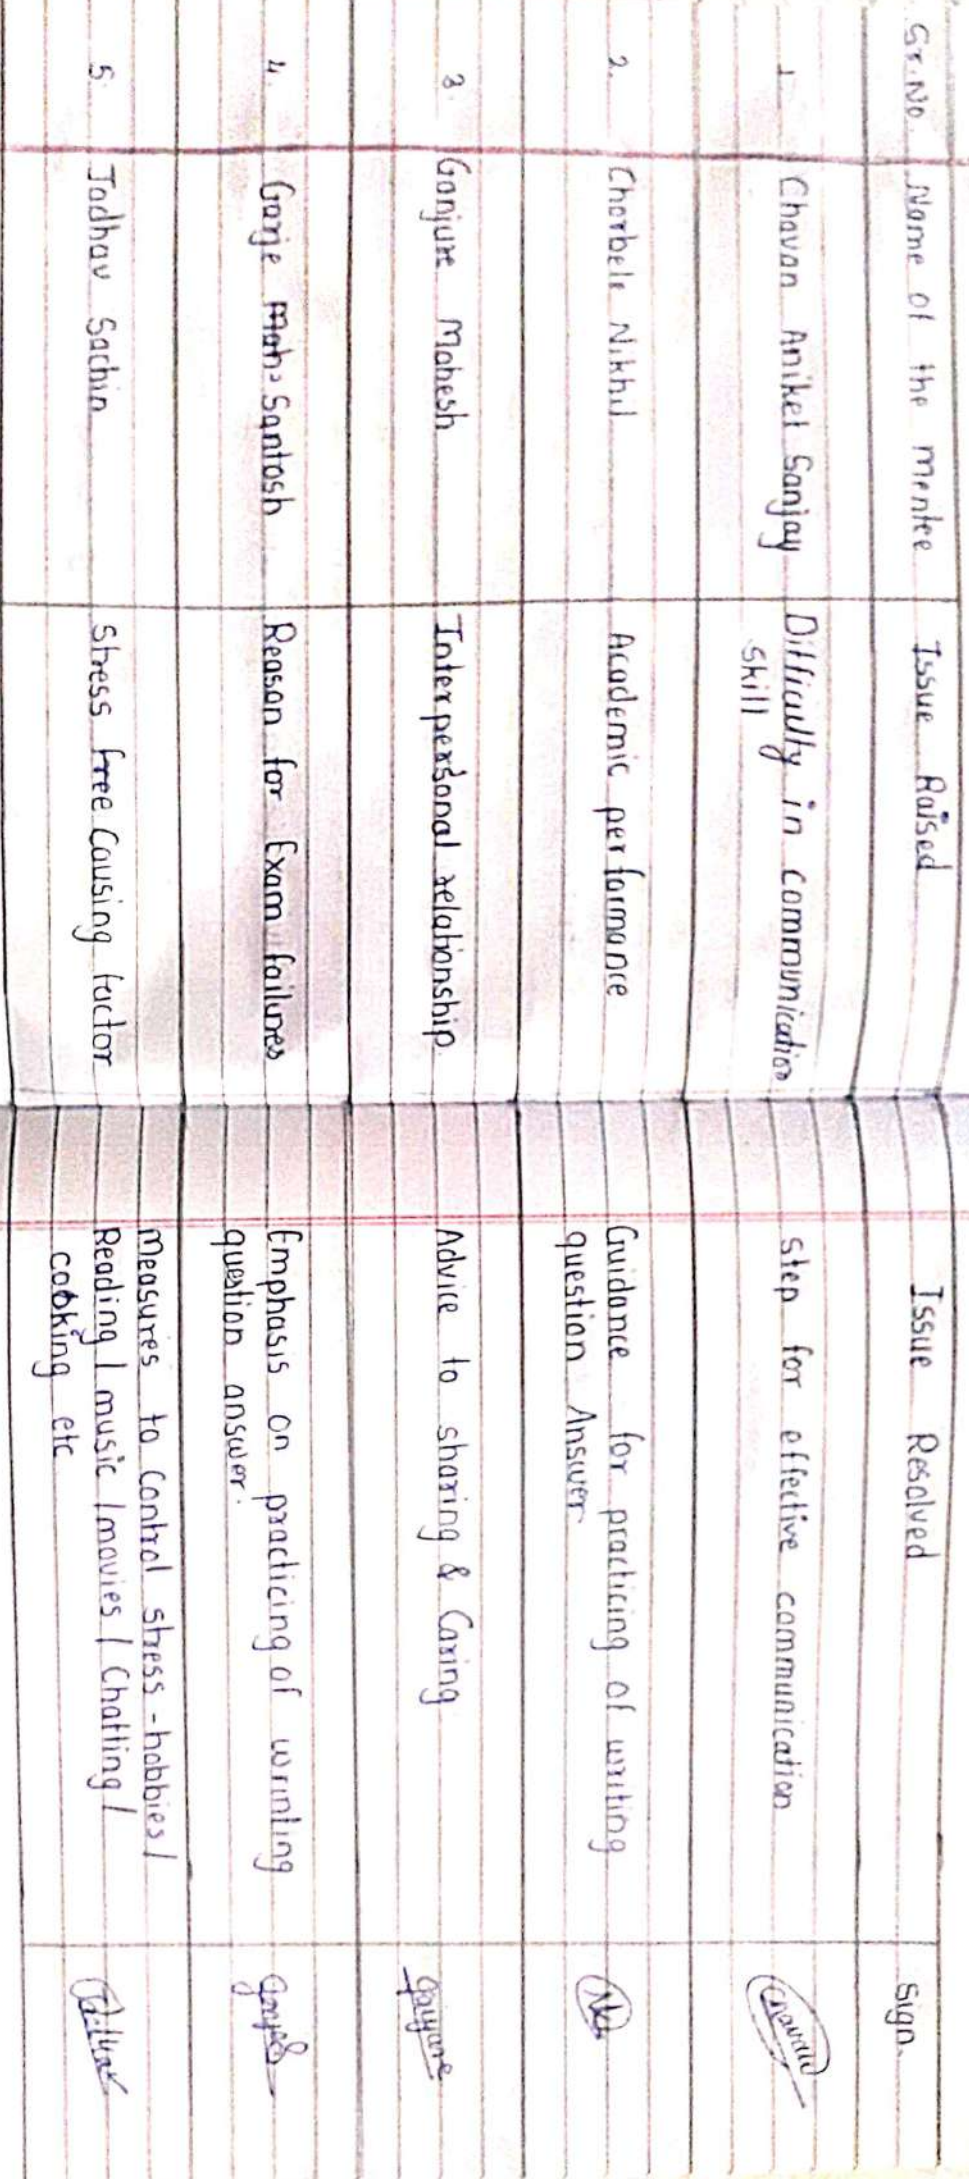 Sr.No Name of the mentee Issue Raised Issue Resolved Sign.
1 Chavan Aniket Sanjay Difficulty in communication Step for effective communication Chavan
skill
2. Charbele Nikhil Academic performance Guidance for practicing of writing
question Answer
3. Ganjure Mahesh Interpersonal relationship Advice to sharing & Caring
4. Ganje Santosh Reason for Exam failures Emphasis on practicing of wrinting
question answer.
5. Jadhav Sachin Stress free Causing factor Measures to control stress - hobbies /
Reading / music / movies / Chatting /
cooking etc